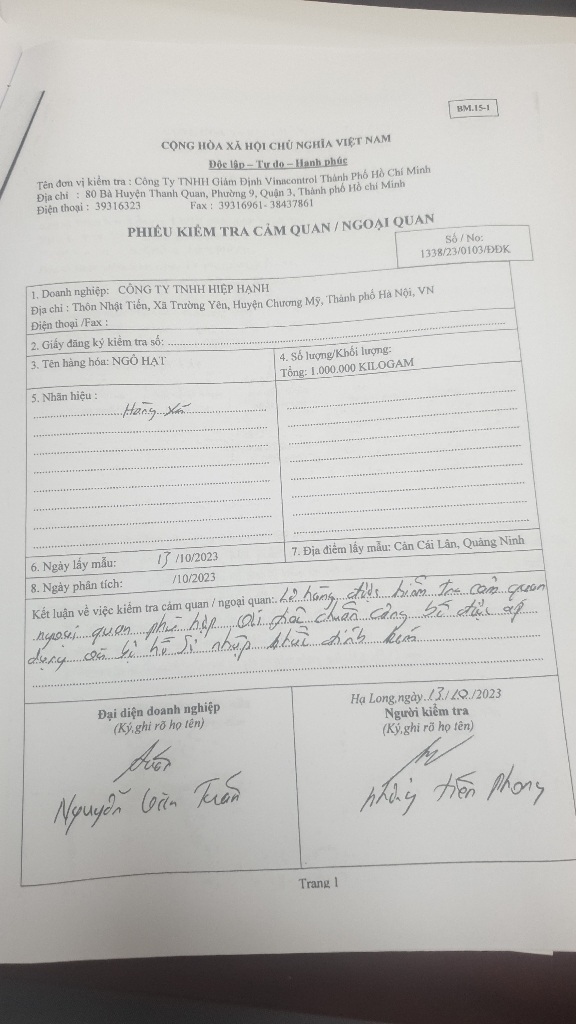 BM.15-1
CỘNG HÒA XÃ HỘI CHỦ NGHĨA VIỆT NAM
Độc lập – Tự do – Hạnh phúc
Tên đơn vị kiểm tra : Công Ty TNHH Giám Định Vinacontrol Thành Phố Hồ Chí Minh
Địa chỉ : 80 Bà Huyện Thanh Quan, Phường 9, Quận 3, Thành phố Hồ chí Minh
Điện thoại : 39316323 Fax : 39316961- 38437861
PHIẾU KIỂM TRA CẢM QUAN / NGOẠI QUAN
Số / No:
1338/23/0103/ĐĐK
1. Doanh nghiệp: CÔNG TY TNHH HIỆP HẠNH
Địa chỉ : Thôn Nhật Tiến, Xã Trường Yên, Huyện Chương Mỹ, Thành phố Hà Nội, VN
Điện thoại /Fax :
2. Giấy đăng ký kiểm tra số:
3. Tên hàng hóa: NGÔ HẠT
4. Số lượng/Khối lượng:
Tổng: 1.000.000 KILOGAM
5. Nhãn hiệu :
Hàng xá
6. Ngày lấy mẫu: 13 /10/2023
7. Địa điểm lấy mẫu: Cản Cái Lân, Quảng Ninh
8. Ngày phân tích: /10/2023
Kết luận về việc kiểm tra cảm quan / ngoại quan: Lô hàng được kiểm tra cảm quan
ngoại quan phù hợp với tiêu chuẩn công bố được áp
dụng và bộ hồ sơ nhập khẩu đính kèm
Đại diện doanh nghiệp
(Ký,ghi rõ họ tên)
Hạ Long,ngày 13/10/2023
Người kiểm tra
(Ký,ghi rõ họ tên)
Nguyễn Văn Tuấn
tiến Phong
Trang 1